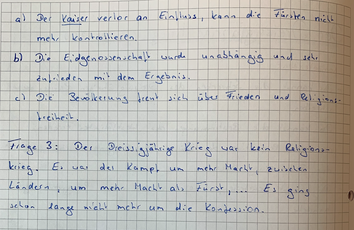 a) Der Kaiser verlor an Einfluss, kann die Fürsten nicht
mehr kontrollieren.
b) Die Eidgenossenschaft wurde unabhängig und sehr
zufrieden mit dem Ergebnis.
c) Die Bevölkerung freut sich über Frieden und Religions-
freiheit.
Frage 3: Der Dreissigjährige Krieg war kein Religions-
krieg. Es war der Kampf um mehr Macht, zwischen
Ländern, um mehr Macht als Fürst, ... Es ging
schon lange nicht mehr um die Konfession.